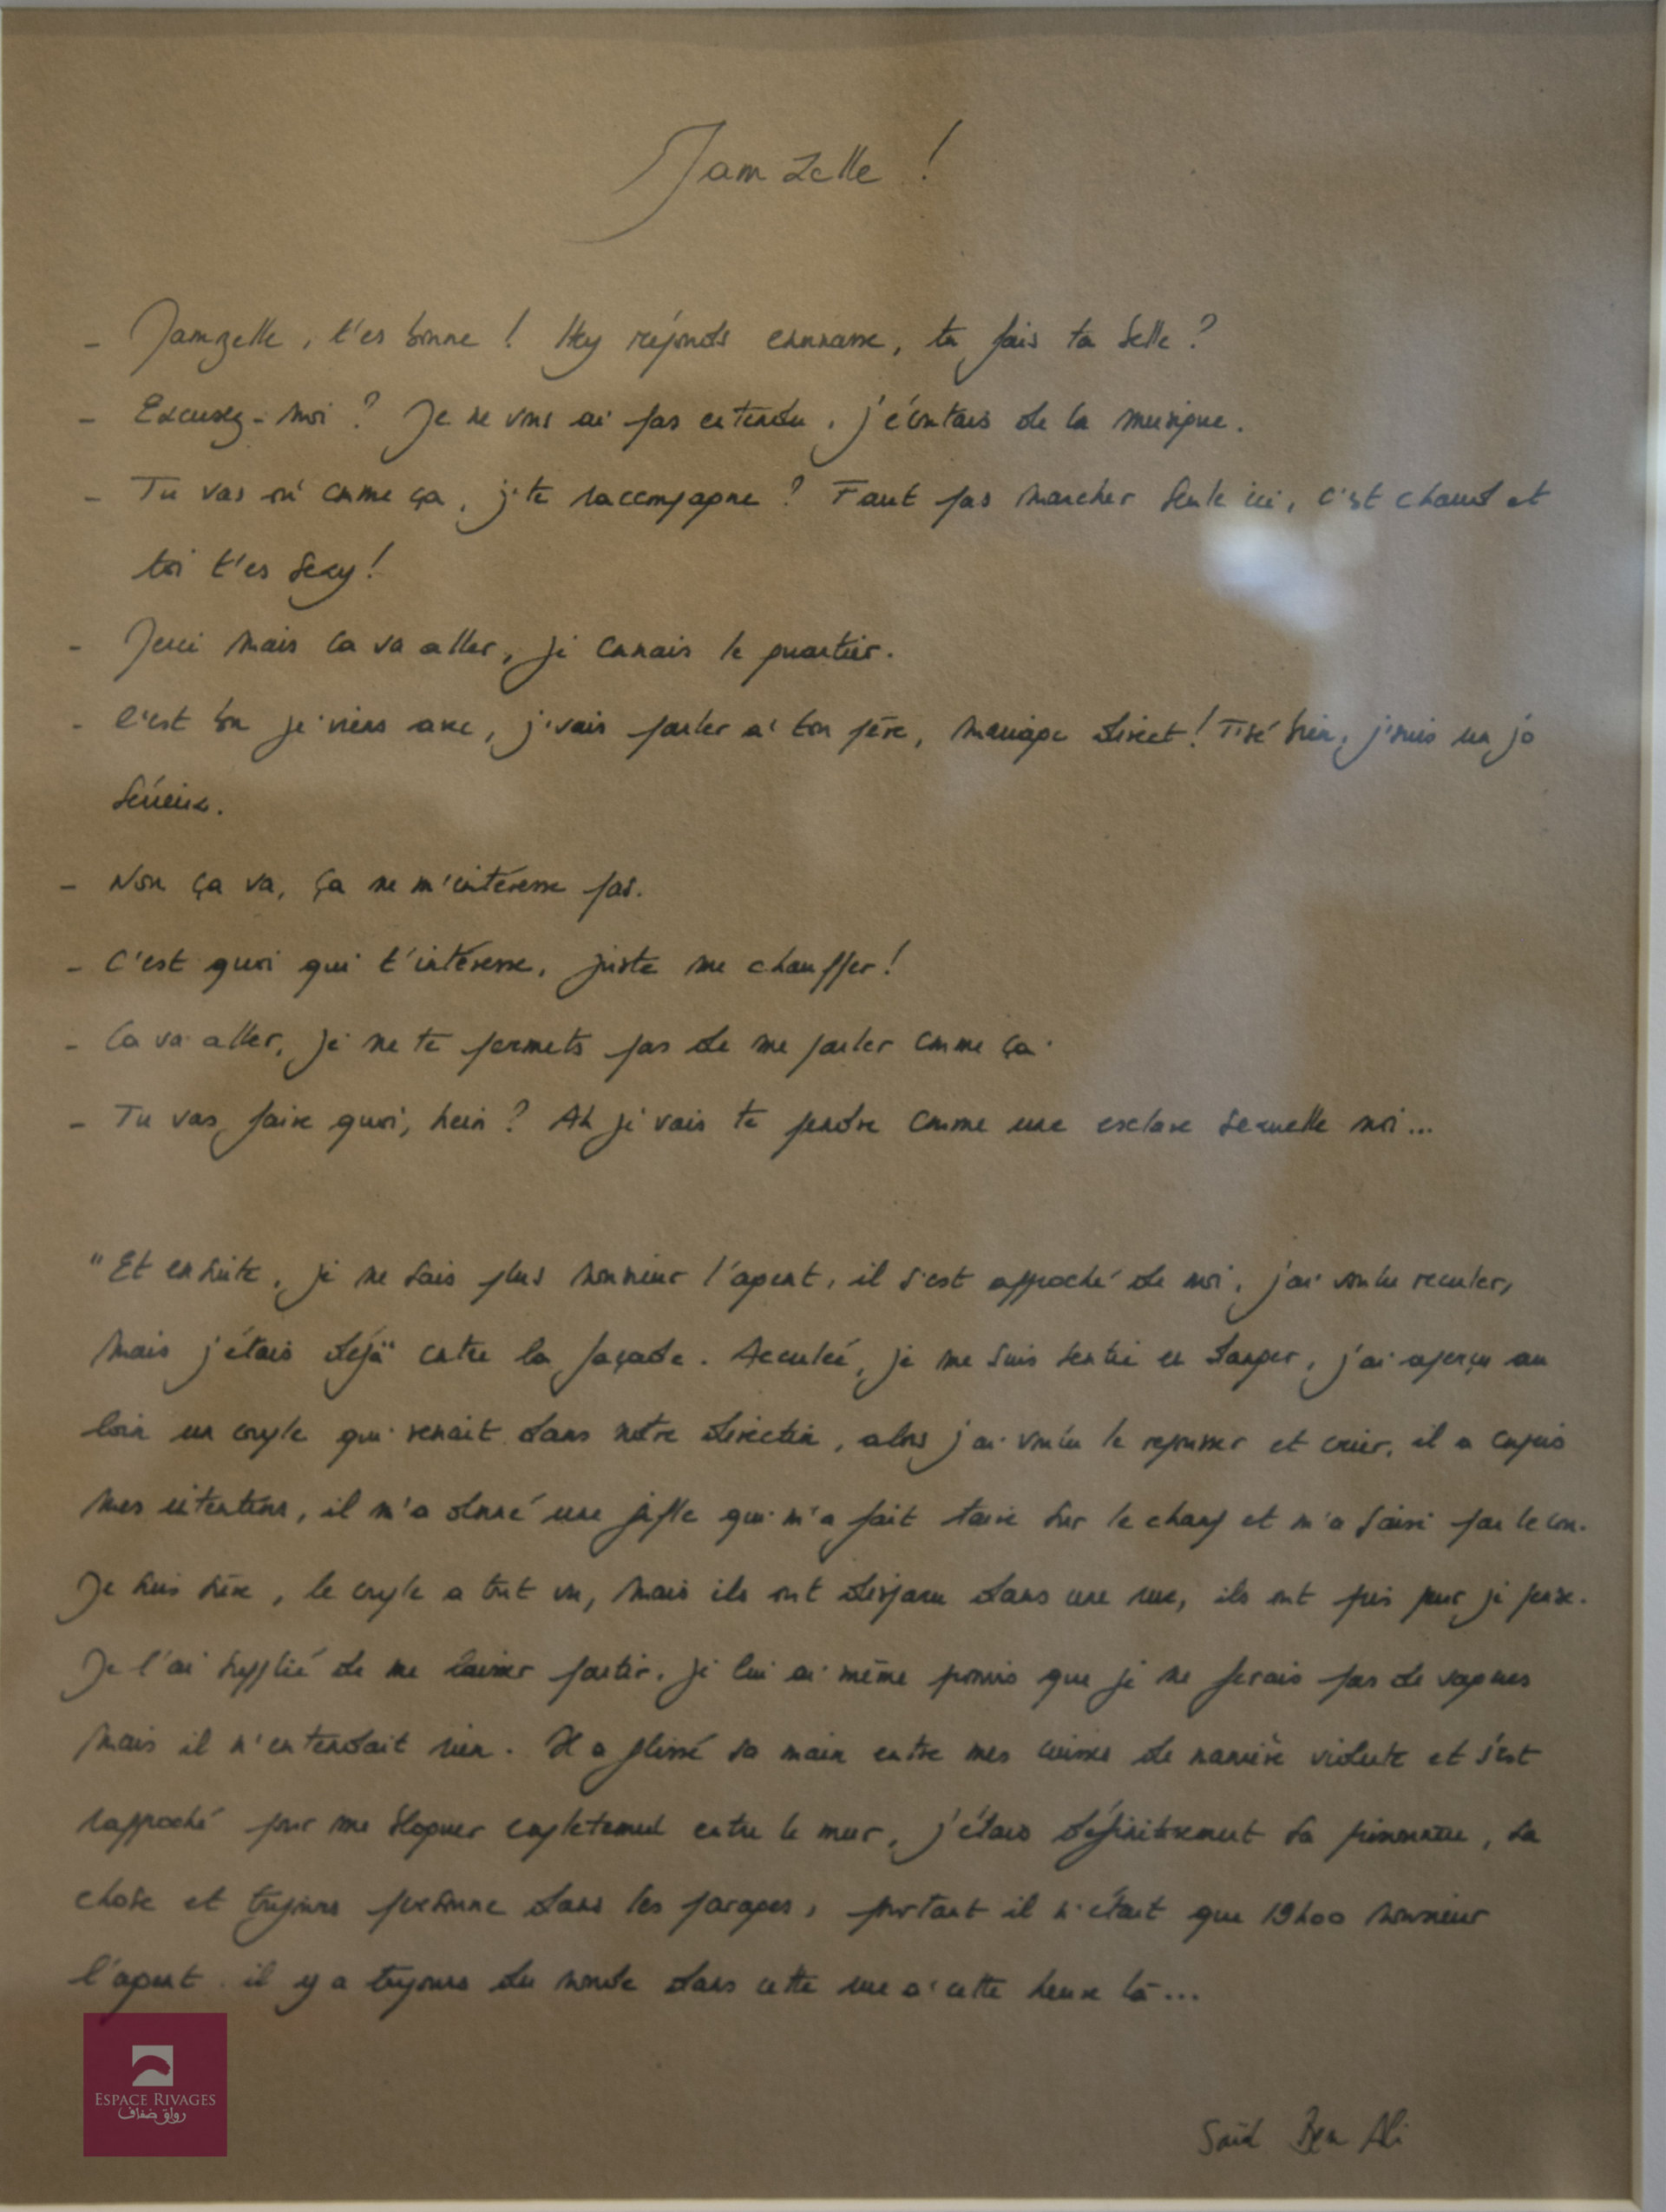 Mamzelle !
- Mamzelle, t'es bonne ! Hey réponds connasse, tu fais ta belle ?
- Excusez-moi ? Je ne vous ai pas entendu, j'écoutais de la musique.
- Tu vas où comme ça, j'te raccompagne ? Faut pas marcher seule ici, c'est chaud et
toi t'es sexy !
- Merci mais ça va aller, je connais le quartier.
- C'est bon je viens avec, j'vais parler à ton père, mariage direct ! T'sé bien, j'suis un jo
sérieux.
- Non ça va, ça ne m'intéresse pas.
- C'est quoi qui t'intéresse, juste me chauffer !
- Ca va aller, je ne te permets pas de me parler comme ça.
- Tu vas faire quoi, hein ? Ah je vais te prendre comme une esclave sexuelle moi...
"Et ensuite, je ne sais plus monsieur l'agent, il s'est approché de moi, j'ai voulu reculer,
mais j'étais déjà contre la façade. Acculée, je me suis sentie en danger, j'ai aperçu au
loin un couple qui venait dans notre direction, alors j'ai voulu le repousser et crier, il a compris
mes intentions, il m'a donné une gifle qui m'a fait taire sur le champ et m'a saisi par le cou.
Je suis sûre, le couple a tout vu, mais ils ont disparu dans une rue, ils ont pris peur je pense.
Je l'ai supplié de me laisser partir. Je lui ai même promis que je ne ferais pas de vagues
mais il n'entendait rien. Il a glissé sa main entre mes cuisses de manière violente et s'est
rapproché pour me bloquer complètement contre le mur, j'étais définitivement sa prisonnière, sa
chose et toujours personne dans les parages, pourtant il n'était que 19h00 monsieur
l'agent. il y a toujours du monde dans cette rue à cette heure là...
Saïd Ben Ali
ESPACE RIVAGES
رواق ضفاف